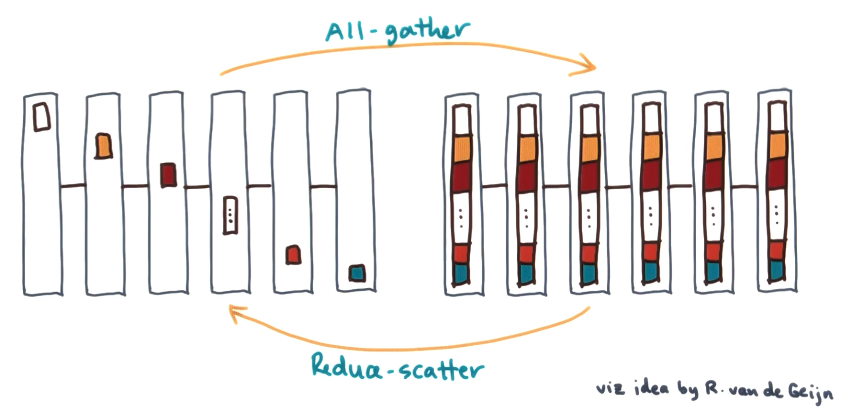 All-gather
Reduce-scatter
viz idea by R. van de Geijn